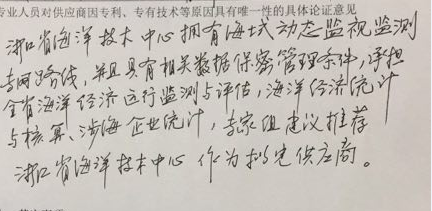 专业人员对供应商因专利、专有技术等原因具有唯一性的具体论证意见
浙江省海洋技术中心拥有海域动态监视监测
专网路线，并且具有相关数据保密管理条件，承担
全省海洋经济运行监测与评估，海洋经济统计
与核算、涉海企业统计，专家组建议推荐
浙江省海洋技术中心作为拟定供应商。